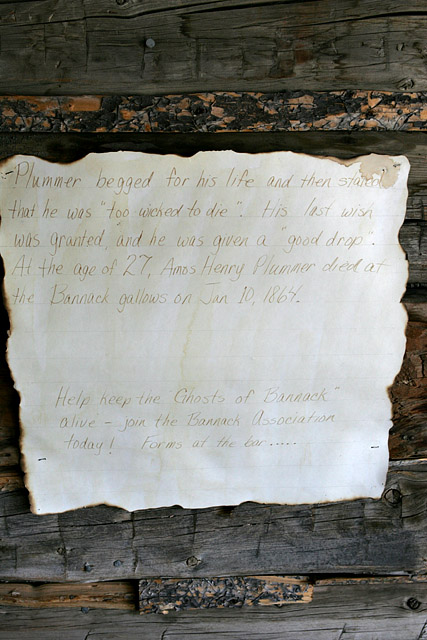 -Plummer begged for his life and then stated
that he was "too wicked to die". His last wish
was granted, and he was given a "good drop".
At the age of 27, Amos Henry Plummer died at
the Bannack gallows on Jan 10, 1864.
Help keep the Ghosts of Bannack"
alive - join the Bannack Association
today! Forms at the bar.....